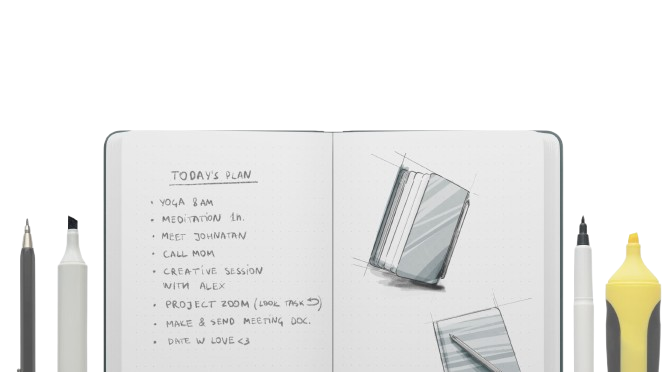 TODAY'S PLAN
• YOGA 8 AM
• MEDITATION 1h.
• MEET JOHNATAN
• CALL MOM
• CREATIVE SESSION
WITH ALEX
• PROJECT ZOOM (LOOK TASK ⮌)
• MAKE & SEND MEETING DOC.
• DATE W LOVE <3